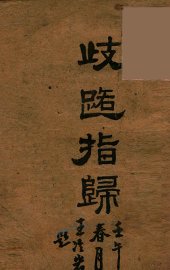 歧路指歸
壬午
春月
王
題